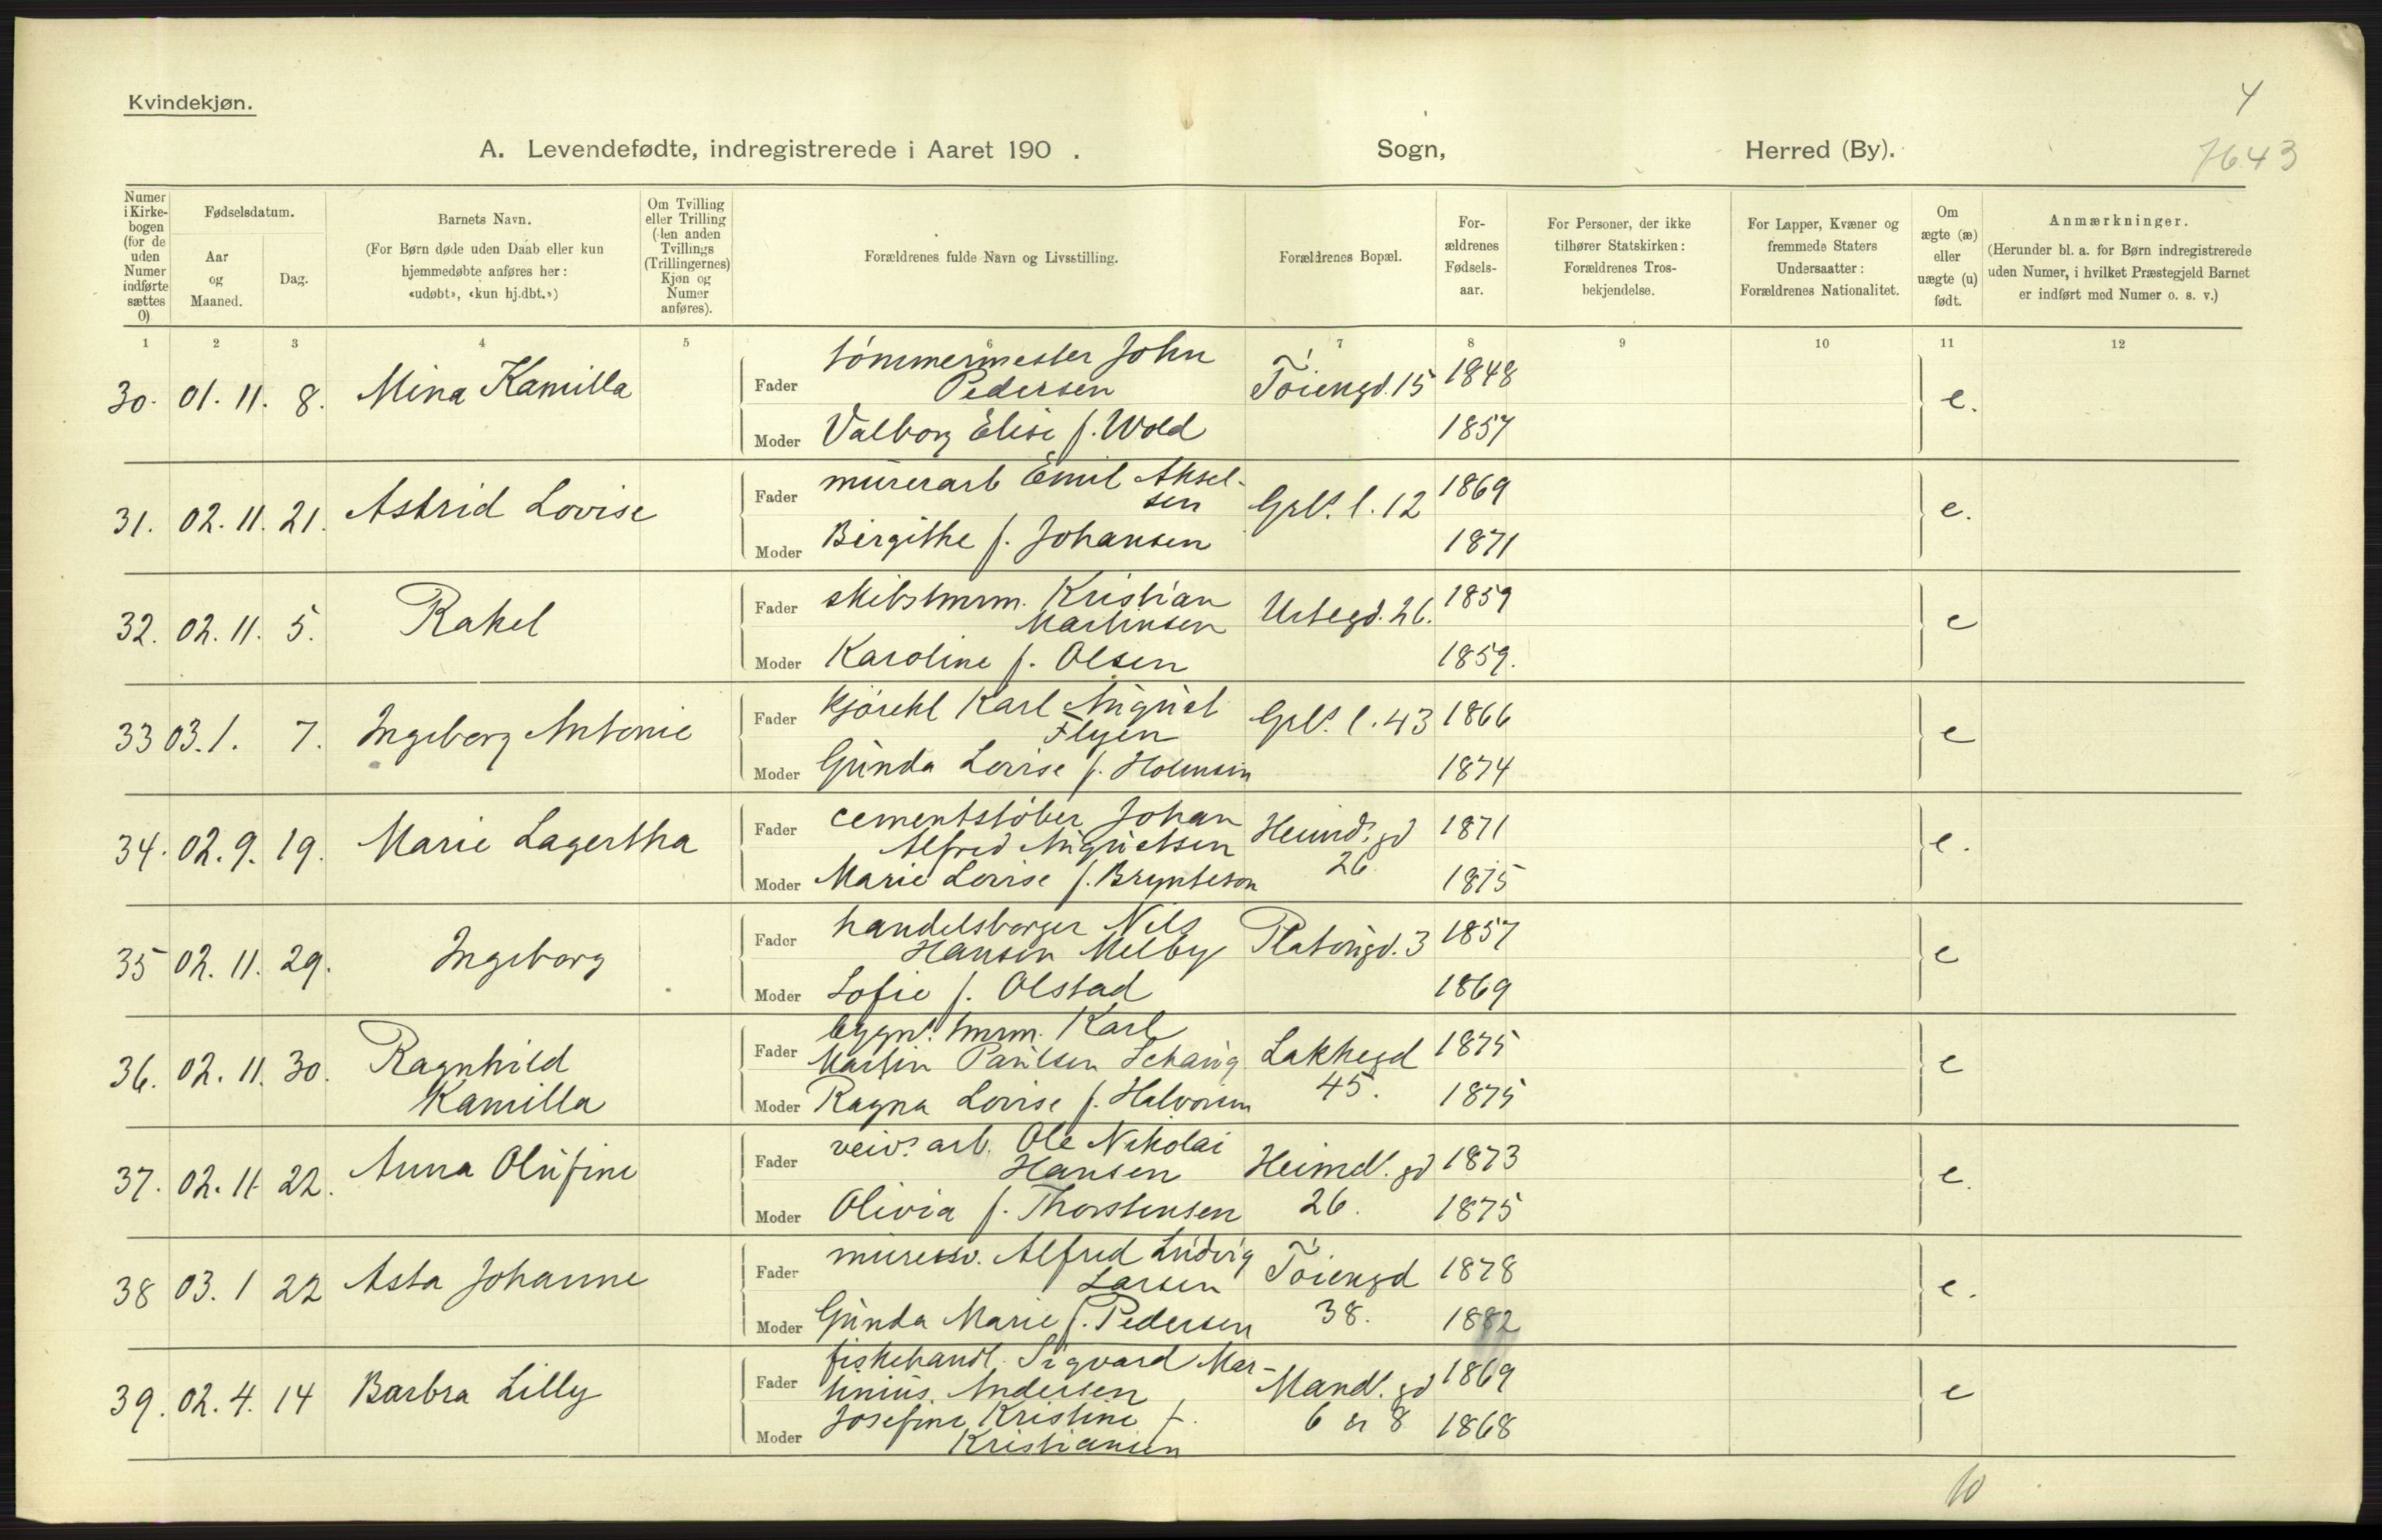 Kvindekjøn.
4
A. Levendefødte, indregistrerede i Aaret 190 . Sogn, Herred (By).
7643
Numer i Kirkebogen (for de uden Numer indførte sættes 0)
Fødselsdatum.
Aar og Maaned.
Dag.
Barnets Navn.
(For Børn døde uden Daab eller kun
hjemmedøbte anføres her:
«udøbt», «kun hj.dbt.»)
Om Tvilling
eller Trilling
(den anden
Tvillings
(Trillingernes)
Kjøn og
Numer
anføres).
Forældrenes fulde Navn og Livsstilling.
Forældrenes Bopæl.
For-
ældrenes
Fødsels-
aar.
For Personer, der ikke
tilhører Statskirken:
Forældrenes Tros-
bekjendelse.
For Lapper, Kvæner og
fremmede Staters
Undersaatter:
Forældrenes Nationalitet.
Om
ægte (æ)
eller
uægte (u)
født.
Anmærkninger.
(Herunder bl. a. for Børn indregistrerede
uden Numer, i hvilket Præstegjeld Barnet
er indført med Numer o. s. v.)
1 2 3 4 5 6 7 8 9 10 11 12
30. 01. 11. 8. Mina Kamilla Fader tómmermester John Pedersen Tóiengd. 15 1848 e.
Moder Valborg Elise f. Wold 1857
31. 02. 11. 21. Astrid Lovise Fader murerarb Emil Akselsen Grls. l. 12 1869 e.
Moder Birgithe f. Johansen 1871
32. 02. 11. 5. Rakel Fader skibstmrm. Kristian Martinsen Urtegd. 26. 1859 e
Moder Karoline f. Olsen 1859.
33 03. 1. 7. Ingeborg Antonie Fader kjórekl Karl August Flyen Grls. l. 43 1866 e
Moder Gunda Lovise f. Holmsen 1874
34. 02. 9. 19. Marie Lagertha Fader cementstóber Johan Alfred Augustsen Heimds. gd 26 1871 e.
Moder Marie Lovise f. Brynteson 1875
35 02. 11. 29. Ingeborg Fader handelsborger Nils Hansen Melby Platougd. 3 1857 e
Moder Sofie f. Olstad 1869
36. 02. 11. 30. Ragnhild Kamilla Fader bygns. tmrm. Karl Martin Paulsen Schaug Lakkegd 45. 1875 e
Moder Ragna Lovise f. Halvorsen 1875
37. 02. 11 22. Anna Olufine Fader veiv. arb. Ole Nikolai Hansen Heimdl. gd 26. 1873 e.
Moder Olivia f. Thorstensen 1875
38 03. 1 22 Asta Johanne Fader muresv. Alfred Ludvig Larsen Tóiengd 38. 1878 e.
Moder Gunda Marie f. Pedersen 1882
39. 02. 4. 14 Barbra Lilly Fader fiskehandl. Sigvard Martinius Andersen Mandl. gd 6 & 8 1869 e
Moder Josefine Kristine f. Kristiansen 1868
10